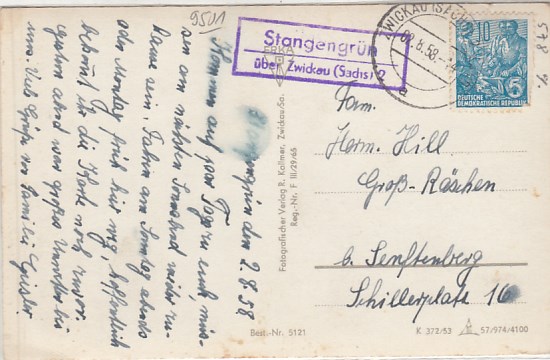 9501
Stangengrün
über Zwickau (Sachs) 2
ZWICKAU (SACHS)
02.8.58.
10
DEUTSCHE
DEMOKRATISCHE REPUBLIK
Stangengrün den 2.8.58.
Kommen auf zwei Tagen
am nächsten Sonnabend wieder zu-
hause sein. Fahren am Sonntag abends
oder Montag früh hier weg, hoffentlich
bekommt ihr die Karte noch zuvor.
Gestern abend war großes Unwetter bei
uns. Viele Grüße von Familie
Fotografischer Verlag R. Kallmer, Zwickau-Sa.
Reg.-Nr. F III/29/45
Fam.
Herm. Hill
Groß-Räschen
b. Senftenberg
Schillerplatz 16
Best.-Nr. 5121
K 372/53
57/974/4100